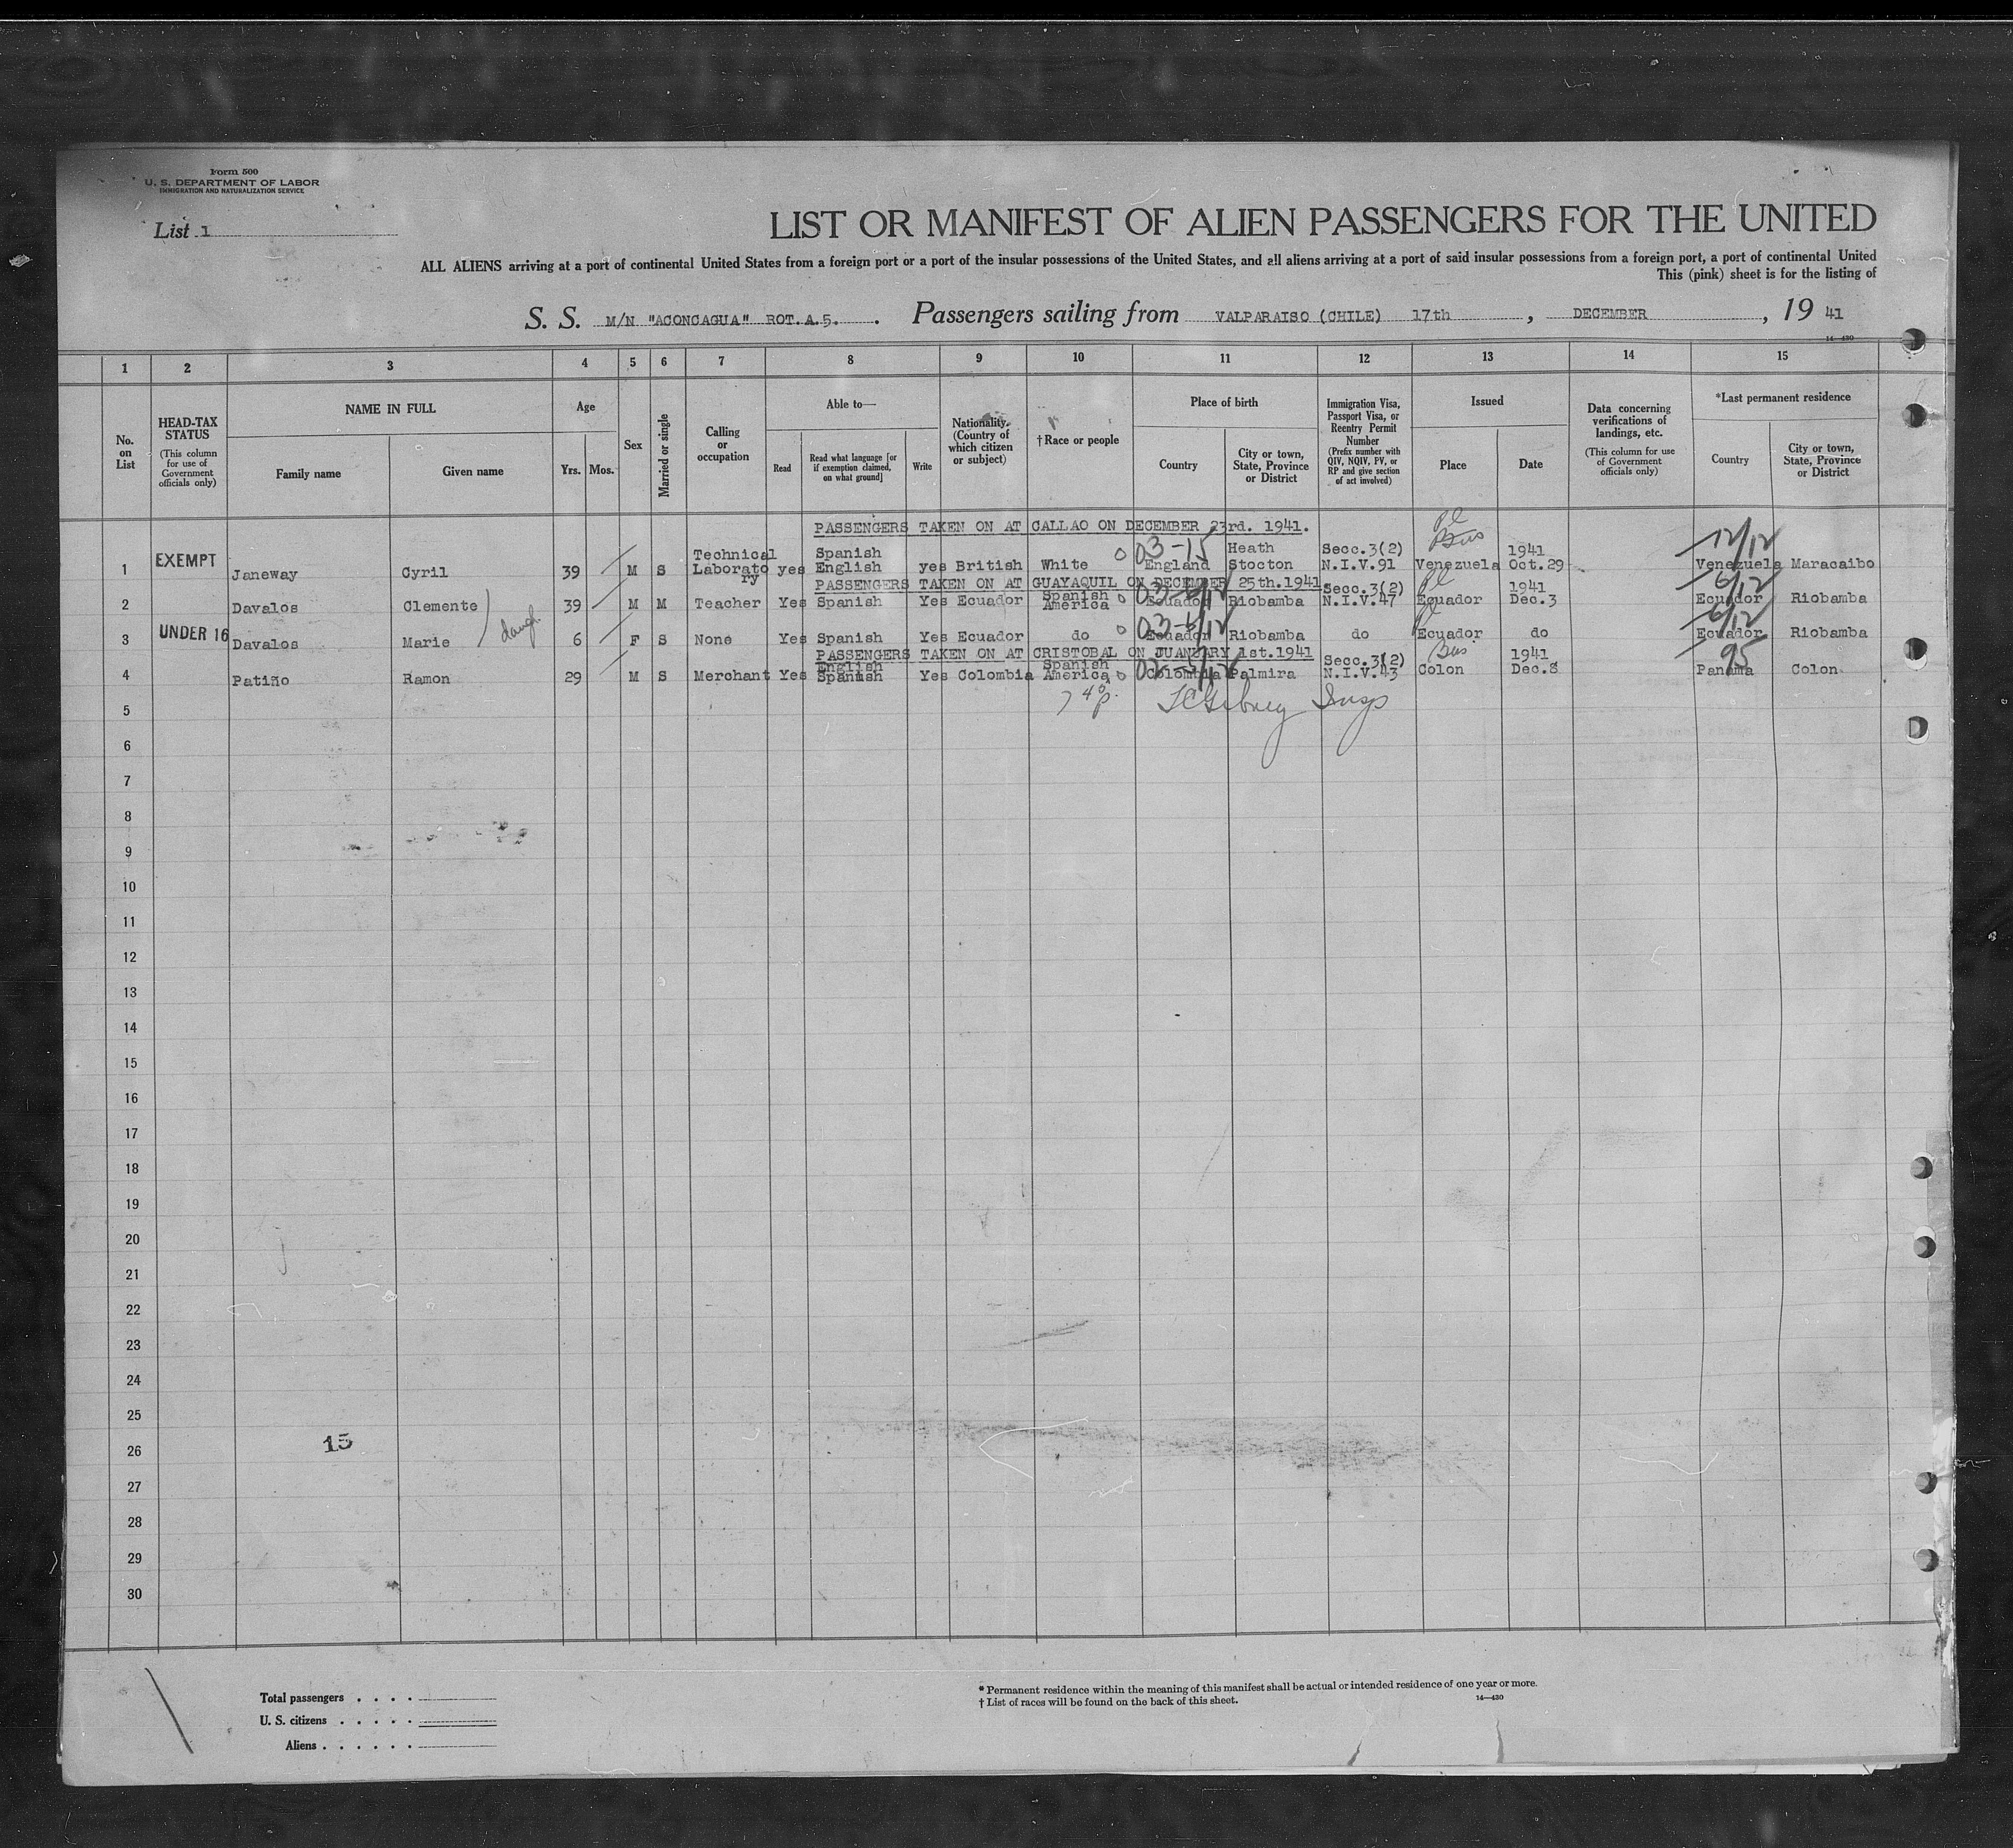 Form 500
U. S. DEPARTMENT OF LABOR
IMMIGRATION AND NATURALIZATION SERVICE
List 1
LIST OR MANIFEST OF ALIEN PASSENGERS FOR THE UNITED
ALL ALIENS arriving at a port of continental United States from a foreign port or a port of the insular possessions of the United States, and all aliens arriving at a port of said insular possessions from a foreign port, a port of continental United
This (pink) sheet is for the listing of
S. S. M/N "ACONCAGUA" ROT.A.5. Passengers sailing from VALPARAISO (CHILE) 17th, DECEMBER, 19 41
14—430
1 2 3 4 5 6 7 8 9 10 11 12 13 14 15
No. on List
HEAD-TAX STATUS (This column for use of Government officials only)
NAME IN FULL Family name Given name
Age Yrs. Mos.
Sex
Married or single
Calling or occupation
Able to— Read Read what language [or if exemption claimed, on what ground] Write
Nationality. (Country of which citizen or subject)
† Race or people
Place of birth Country City or town, State, Province or District
Immigration Visa, Passport Visa, or Reentry Permit Number (Prefix number with QIV, NQIV, PV, or RP and give section of act involved)
Issued Place Date
Data concerning verifications of landings, etc. (This column for use of Government officials only)
*Last permanent residence Country City or town, State, Province or District
PASSENGERS TAKEN ON AT CALLAO ON DECEMBER 23rd. 1941.
1 EXEMPT Janeway Cyril 39 M S Technical Laboratory yes Spanish English yes British White 03-15 England Heath Stocton Secc.3(2) N.I.V.91 Venezuela 1941 Oct.29 12/12 Venezuela Maracaibo
PASSENGERS TAKEN ON AT GUAYAQUIL ON DECEMBER 25th.1941
2 Davalos Clemente 39 M M Teacher Yes Spanish Yes Ecuador Spanish America Ecuador Riobamba Secc.3(2) N.I.V.47 Ecuador 1941 Dec.3 6/12 Ecuador Riobamba
3 UNDER 16 Davalos Marie daugh 6 F S None Yes Spanish Yes Ecuador do Ecuador Riobamba do Ecuador do 6/12 Ecuador Riobamba
PASSENGERS TAKEN ON AT CRISTOBAL ON JUANUARY 1st.1941
4 Patiño Ramon 29 M S Merchant Yes English Spanish Yes Colombia Spanish America Colombia Palmira Secc.3(2) N.I.V.43 Colon 1941 Dec.8 95 Panama Colon
5
6
7
8
9
10
11
12
13
14
15
16
17
18
19
20
21
22
23
24
25
26 15
27
28
29
30
Total passengers . . . .
U. S. citizens . . . . .
Aliens . . . . . .
* Permanent residence within the meaning of this manifest shall be actual or intended residence of one year or more.
† List of races will be found on the back of this sheet.
14—430